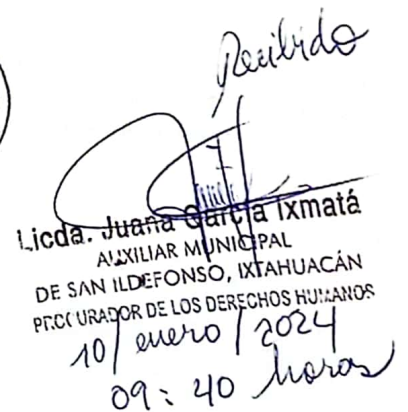 Recibido
Licda. Juana García Ixmatá
AUXILIAR MUNICIPAL
DE SAN ILDEFONSO, IXTAHUACÁN
PROCURADOR DE LOS DERECHOS HUMANOS
10/enero/2024
09:40 horas